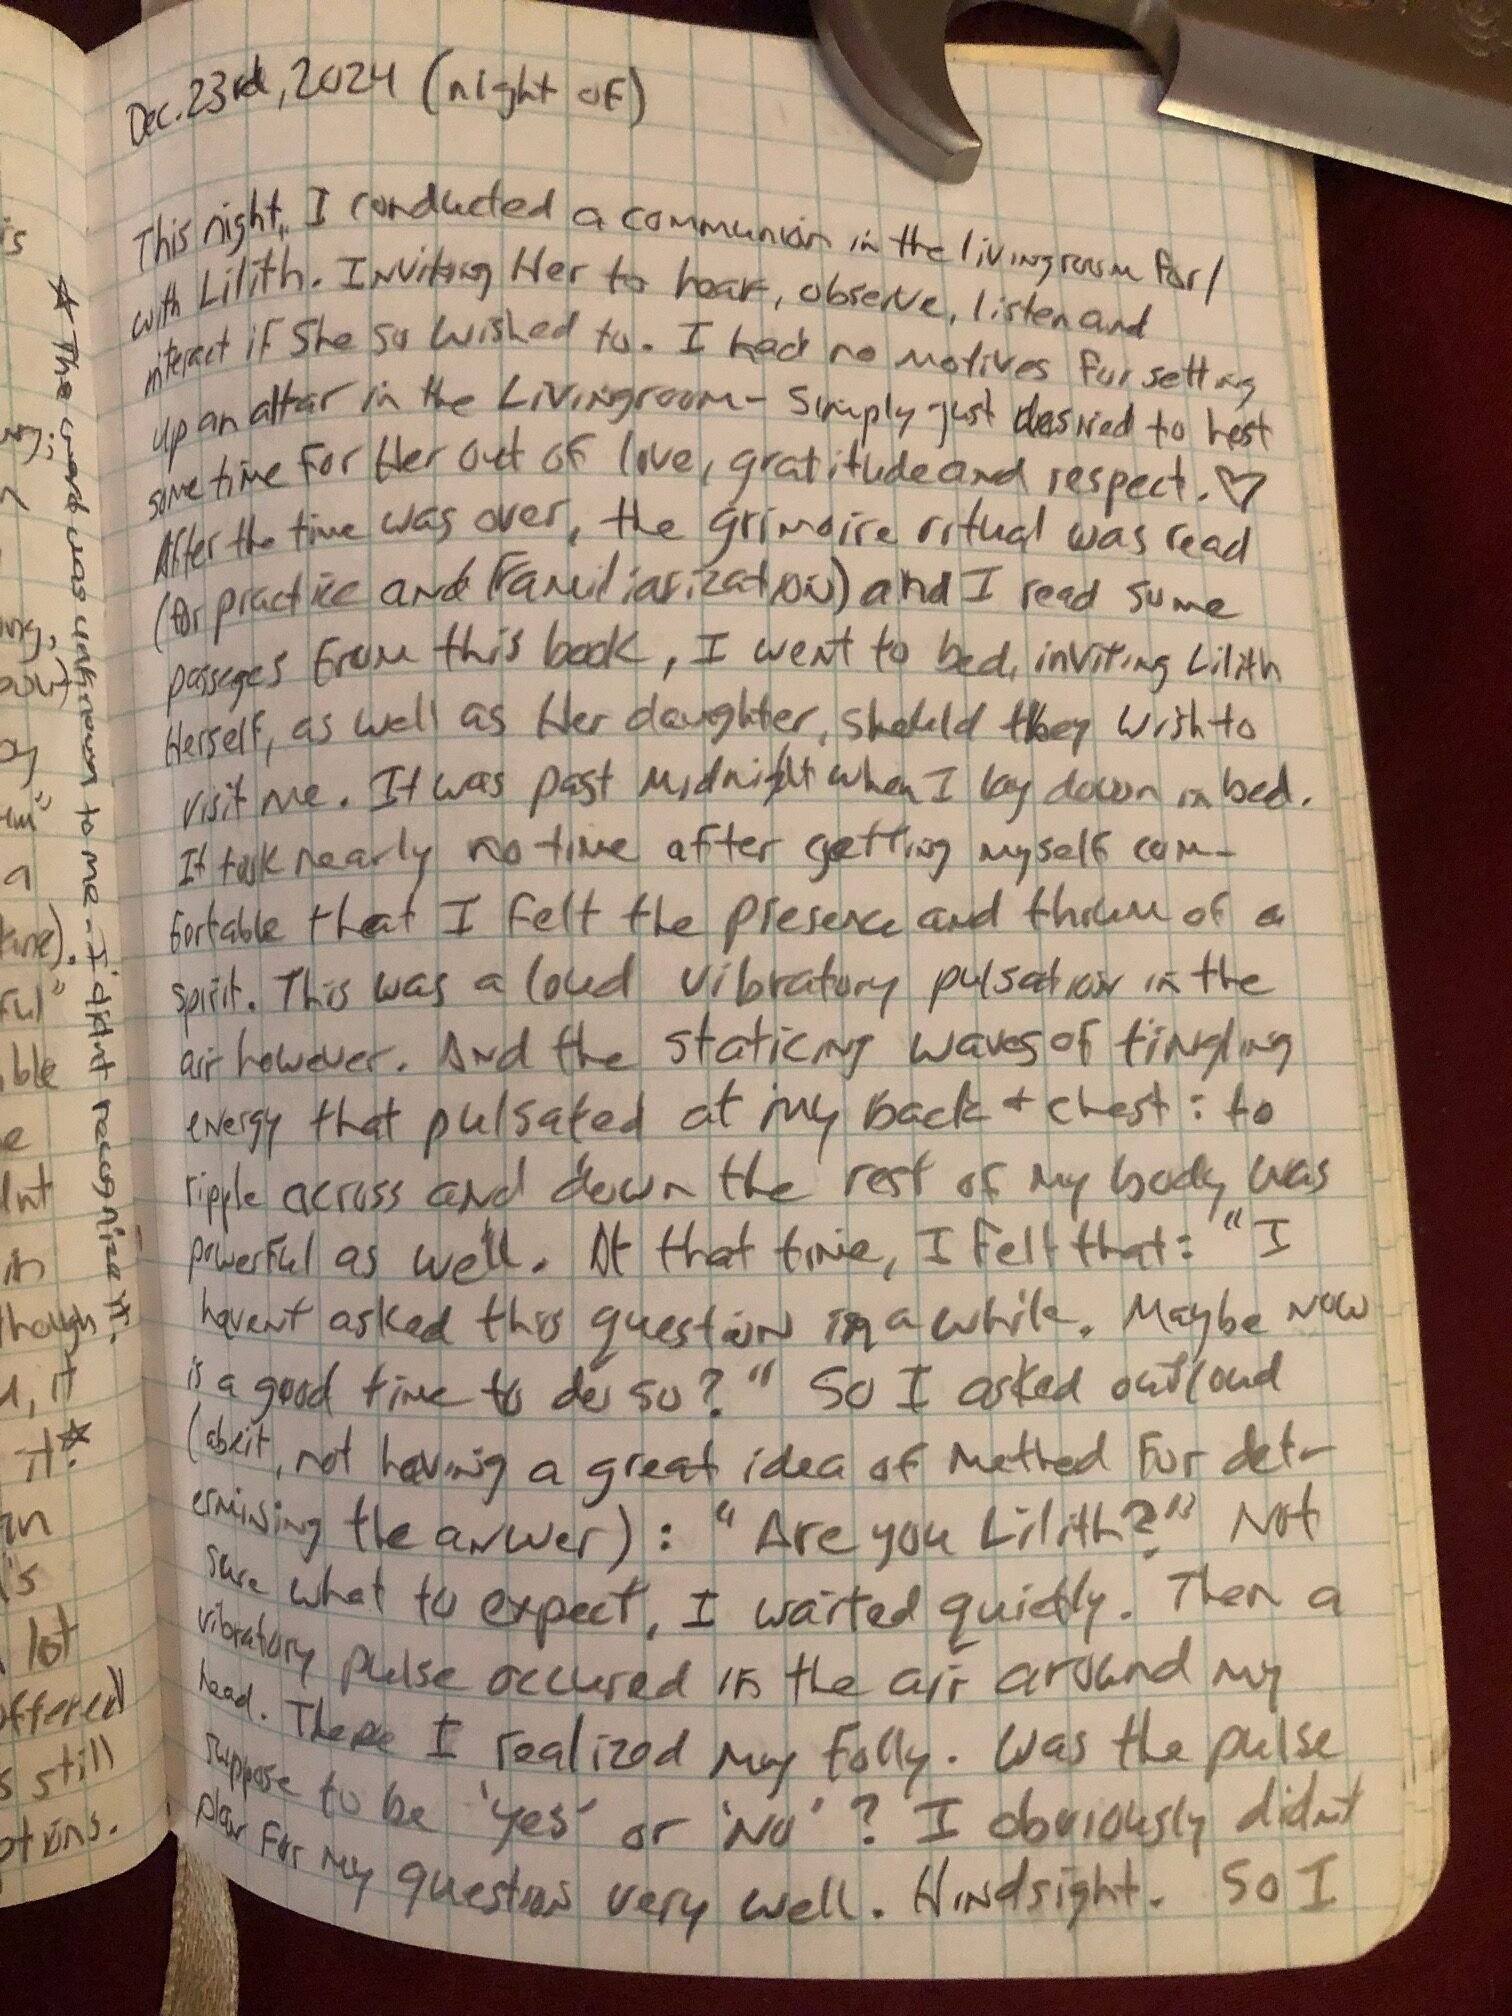 Dec. 23rd, 2024 (night of)
This night, I conducted a communion in the livingroom for/
with Lilith. Inviting Her to hear, observe, listen and
interact if She so wished to. I had no motives for setting
up an altar in the Livingroom - Simply just desired to host
some time for Her out of love, gratitude and respect. ♡
After the time was over, the grimoire ritual was read
(for practice and familiarization) and I read some
passages from this book, I went to bed, inviting Lilith
Herself, as well as Her daughter, should they wish to
visit me. It was past midnight when I lay down in bed.
It took nearly no time after getting myself com-
fortable that I felt the presence and thrum of a
spirit. This was a loud vibratory pulsation in the
air however. And the staticing waves of tingling
energy that pulsated at my back + chest: to
ripple across and down the rest of my body, was
powerful as well. At that time, I felt that: "I
havent asked this question in a while. Maybe now
is a good time to do so?" So I asked outloud
(abeit, not having a great idea of method for det-
ermining the anwer): "Are you Lilith?" Not
sure what to expect, I waited quietly. Then a
vibratory pulse occured in the air around my
head. There I realized my folly. Was the pulse
suppose to be 'yes' or 'no'? I obviously didnt
plan for my question very well. Hindsight. So I
☆ The word was unknown to me - I didnt recognize it.
is
a
ible
in
though
it
it☆
lot
offered
still